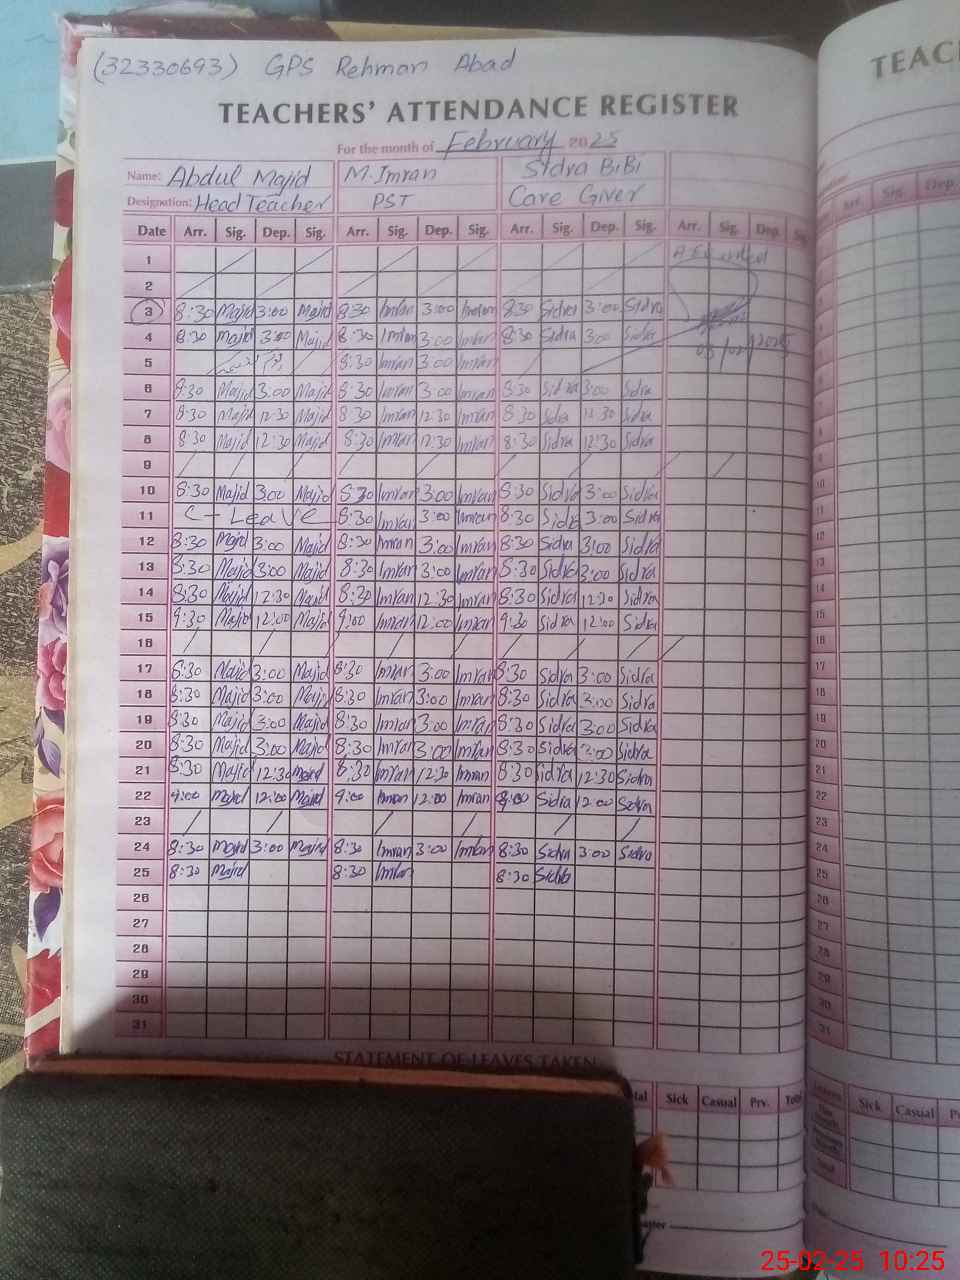 (32330693) GPS Rehman Abad
TEACHERS' ATTENDANCE REGISTER
For the month of February 2025
Name: Abdul Majid M.Imran Sidra BiBi
Designation: Head Teacher PST Care Giver
Date Arr. Sig. Dep. Sig. Arr. Sig. Dep. Sig. Arr. Sig. Dep. Sig. Arr. Sig. Dep.
1
2
3 8:30 Majid 3:00 Majid 8:30 Imran 3:00 Imran 8:30 Sidra 3:00 Sidra
4 8:30 Majid 3:00 Majid 8:30 Imran 3:00 Imran 8:30 Sidra 3:00 Sidra
5 8:30 Imran 3:00 Imran
6 8:30 Majid 3:00 Majid 8:30 Imran 3:00 Imran 8:30 Sidra 3:00 Sidra
7 8:30 Majid 12:30 Majid 8:30 Imran 12:30 Imran 8:30 Sidra 12:30 Sidra
8 8:30 Majid 12:30 Majid 8:30 Imran 12:30 Imran 8:30 Sidra 12:30 Sidra
9
10 8:30 Majid 3:00 Majid 8:30 Imran 3:00 Imran 8:30 Sidra 3:00 Sidra
11 C - Leave 8:30 Imran 3:00 Imran 8:30 Sidra 3:00 Sidra
12 8:30 Majid 3:00 Majid 8:30 Imran 3:00 Imran 8:30 Sidra 3:00 Sidra
13 8:30 Majid 3:00 Majid 8:30 Imran 3:00 Imran 8:30 Sidra 3:00 Sidra
14 8:30 Majid 12:30 Majid 8:30 Imran 12:30 Imran 8:30 Sidra 12:30 Sidra
15 9:30 Majid 12:00 Majid 9:00 Imran 12:00 Imran 9:30 Sidra 12:00 Sidra
16
17 8:30 Majid 3:00 Majid 8:30 Imran 3:00 Imran 8:30 Sidra 3:00 Sidra
18 8:30 Majid 3:00 Majid 8:30 Imran 3:00 Imran 8:30 Sidra 3:00 Sidra
19 8:30 Majid 3:00 Majid 8:30 Imran 3:00 Imran 8:30 Sidra 3:00 Sidra
20 8:30 Majid 3:00 Majid 8:30 Imran 3:00 Imran 8:30 Sidra 3:00 Sidra
21 8:30 Majid 12:30 Majid 8:30 Imran 12:30 Imran 8:30 Sidra 12:30 Sidra
22 9:00 Majid 12:00 Majid 9:00 Imran 12:00 Imran 9:00 Sidra 12:00 Sidra
23
24 8:30 Majid 3:00 Majid 8:30 Imran 3:00 Imran 8:30 Sidra 3:00 Sidra
25 8:30 Majid 8:30 Imran 8:30 Sidra
26
27
28
29
30
31
STATEMENT OF LEAVES TAKEN
Sick Casual Prv. Total
Sick Casual
25-02-25 10:25